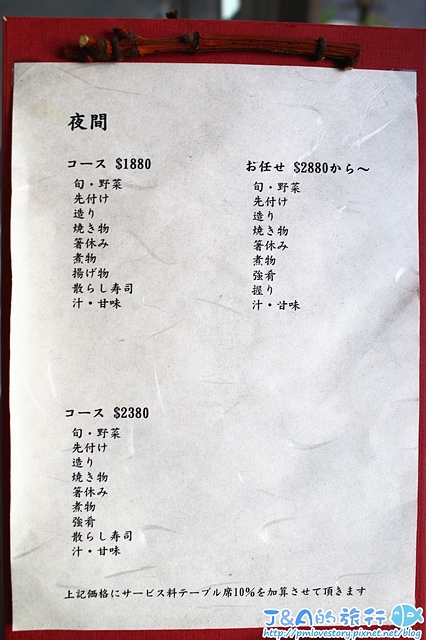 夜間
コース $1880
旬・野菜
先付け
造り
焼き物
箸休み
煮物
揚げ物
散らし寿司
汁・甘味
お任せ $2880から～
旬・野菜
先付け
造り
焼き物
箸休み
煮物
強肴
握り
汁・甘味
コース $2380
旬・野菜
先付け
造り
焼き物
箸休み
煮物
強肴
散らし寿司
汁・甘味
上記価格にサービス料テーブル席10%を加算させて頂きます
J&A的旅行
http://pmlovestory.pixnet.net/blog